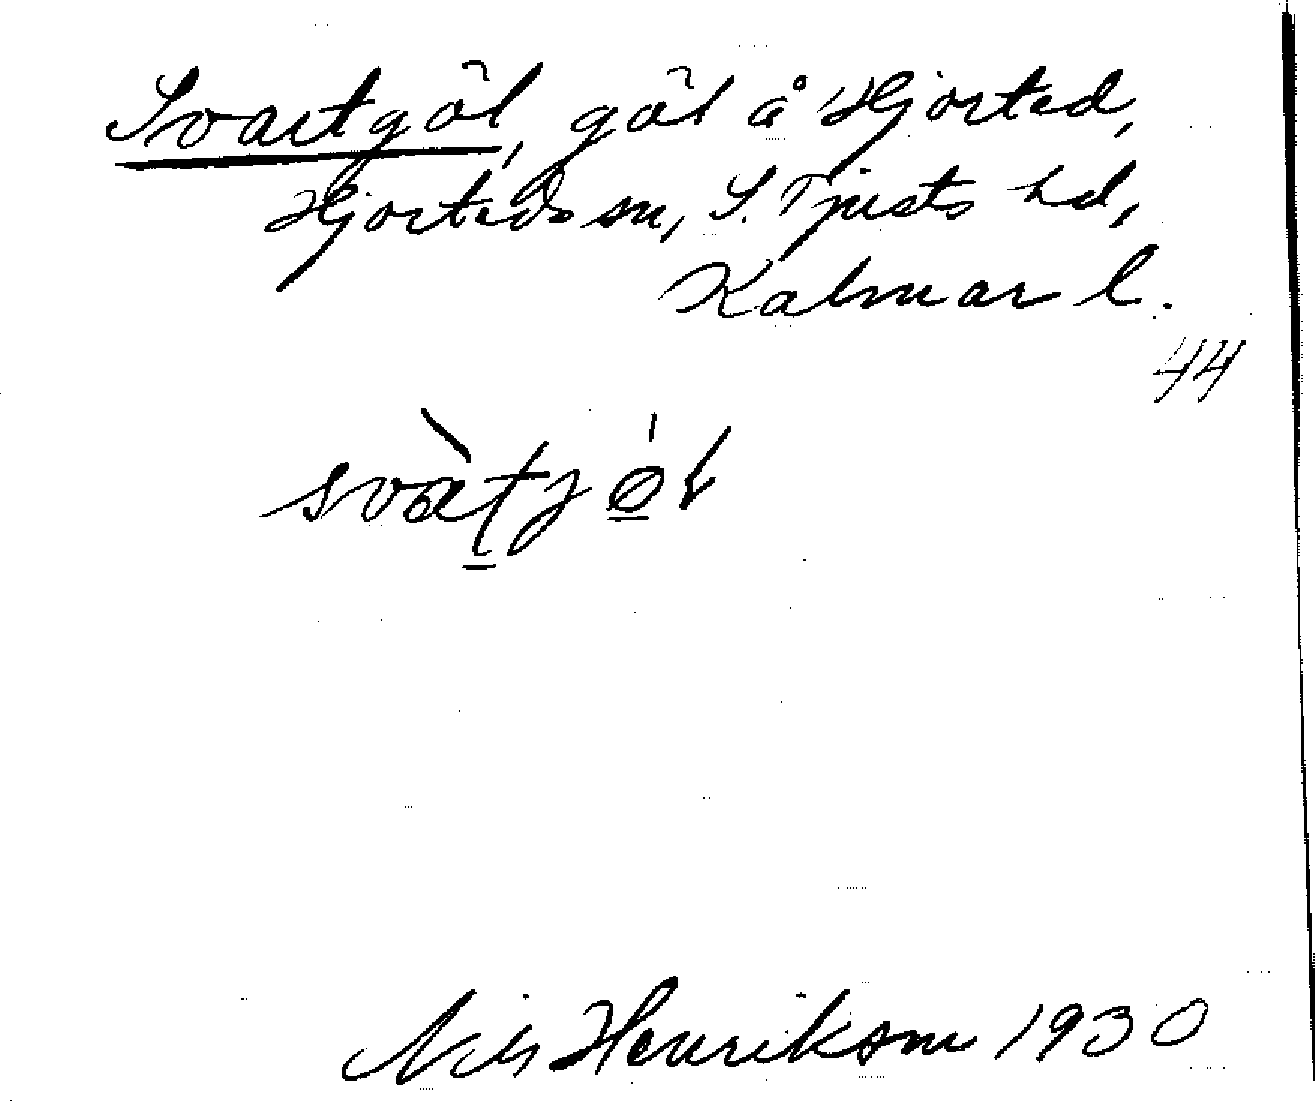 Svartgöl, göl å Hjorted,
Hjorteds sn, S. Tjusts hd,
Kalmar l.
44
Nils Henrikson 1930